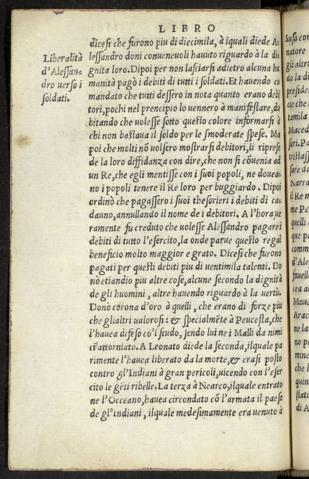 LIBRO
Liberalità
d'Alessan-
dro verso i
soldati.
dicesi che furono piu di diecimila, à iquali diede A-
lessandro doni convenevoli havuto riguardo à la di
gnita loro. Dipoi per non lasciarsi adietro alcuna hu
manità pagò i debiti di tutti i soldati. Et havendo co
mandato che tutti dessero in nota quanto erano debi
tori, pochi nel prencipio lo vennero à manifestare, du
bitando che volesse sotto questo colore informarsi à
chi non bastaua il soldo per le smoderate spese. Ma
poi che molti nō volsero mostrarsi debitori, ii riprese
de la loro diffidanza con dire, che non si cōuenia ad
un Re, che egli mentisse con i suoi popoli, ne douea
no i popoli tenere il Re loro per buggiardo. Dipoi
ordinò che pagassero i suoi thesorieri i debiti di ca
dauno, annullando il nome de i debitori. A l'hora ue
ramente fu creduto che volesse Alessandro pagare i
debiti di tutto l'esercito, la onde parue questo regal
beneficio molto maggior e grato. Dicesi che furono
pagati per questi debiti piu di ventimila talenti. Do
nò etiandio piu altre cose, alcune secondo la dignità
de gli huomini, altre hauendo riguardo à la uertù.
Donò corona d'oro à quelli, che erano di forze piu
che gli altri ualorosi: & specialmēte à Peucesta, che
l'hauea difeso co'l scudo, sendo lui ne i Malli da nimi
ci attorniato. A Leonato diede la seconda, ilquale pa
rimente l'hauea liberato da la morte, & erasi posto
contro gl'Indiani à gran pericoli, uicendo con l'eser
cito le gēti ribelle. La terza à Nearco, ilquale entrato
ne l'Occeano, hauea circondato cō l'armata il paese
de gl'Indiani, ilquale medesimamente era uenuto à